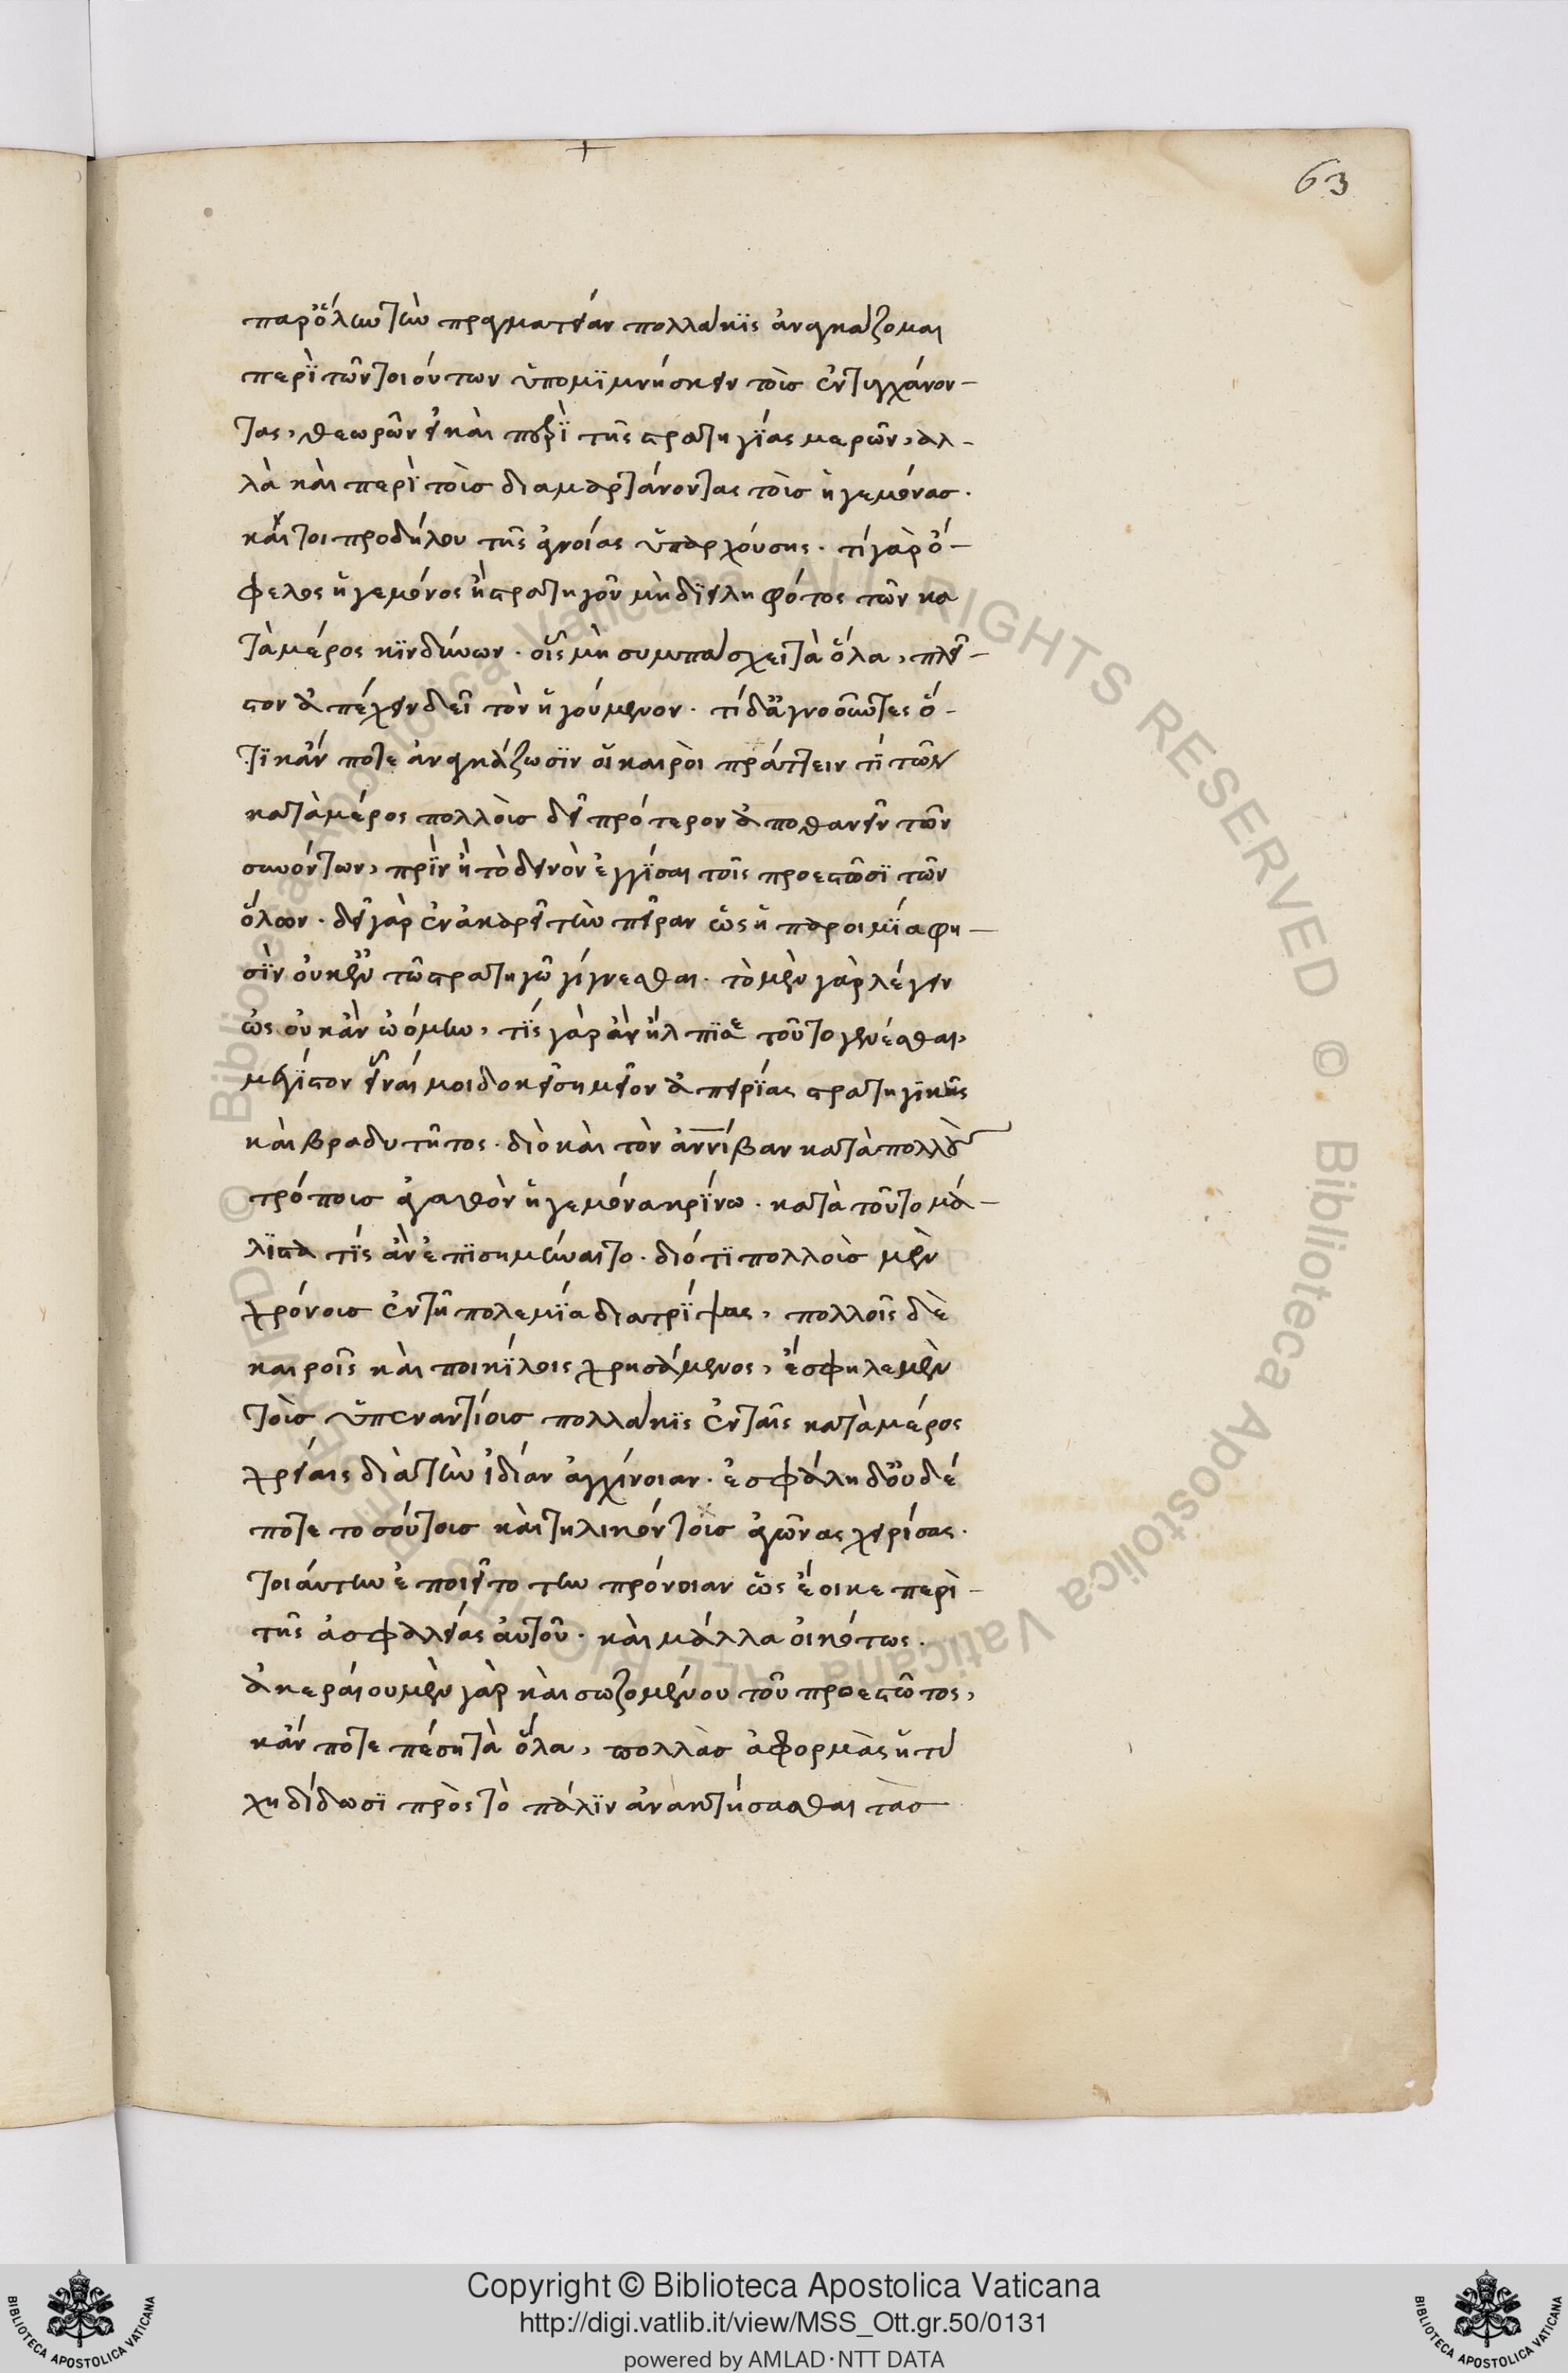 παρὅλην τὴν πραγματείαν πολλάκϊς ἀναγκάζομαι
περὶ τῶν τοιούτων ὑπομϊμνήσκειν τοὺσ ἐντυγχάνον-
τας, θεωρῶν εἰ καὶ περὶ τῆς στρατηγίας μερῶν, ἀλ-
λὰ καὶ περὶ τοὺσ διαμαρτάνοντας τοὺσ ἡγεμόνασ.
καίτοι προδήλου τῆς ἀγνοίας ὑπαρχούσης. τί γὰρ ὄ-
φελος ἡγεμόνος ἢ στρατηγοῦ μὴ διειληφότος τῶν κα
τὰ μέρος κϊνδύνων. οἷς μὴ συμπάσχει τὰ ὅλα, πλεῖ-
στον ἀπέχειν δεῖ τὸν ἡγούμενον. τί δἀγνοοῦντες ὅ-
τϊ κἄν ποτε ἀναγκάζωσϊν οἱ καιροὶ πράττειν τὶ τῶν
κατὰ μέρος πολλοὺσ δεῖ πρότερον ἀποθανεῖν τῶν
συνόντων, πρὶν ἢ τὸ δεινὸν ἐγγίσαι τοῖς προεστῶσϊ τῶν
ὅλων. δεῖ γὰρ ἐν ἀκαρεῖ τὴν πεῖραν ὥς ἡ παροιμία φη-
σὶν οὐκ ἐν τῶ στρατηγῶ γίγνεσθαι. τὸ μὲν γὰρ λέγειν
ὡς οὐκ ἂν ὠόμην, τίς γὰρ ἂν ἤλπϊσε τοῦτο γενέσθαι,
μέγϊστον εἶναί μοι δοκεῖ σημεῖον ἀπειρίας στρατηγικῆς
καὶ βραδυτῆτος. διὸ καὶ τὸν ἀννίβαν κατὰ πολλοὺς
τρόπουσ ἀγαθὸν ἡγεμόνα κρίνω. κατὰ τοῦτο μά-
λϊστα τίς ἂν ἐπϊσημήναιτο. διότϊ πολλοὺσ μὲν
χρόνουσ ἐν τῆ πολεμία διατρίψας, πολλοῖς δὲ
καιροῖς καὶ ποικίλοις χρησάμενος, ἔσφηλε μὲν
τοὺσ ὑπεναντίουσ πολλάκϊς ἐν ταῖς κατὰ μέρος
χρείαις διὰ τὴν ἰδίαν ἀγχίνοιαν. ἐσφάλη δοὐδέ
ποτε τοσούτουσ καὶ τηλικούτουσ ἀγῶνας χειρίσας.
τοιάυτην ἐποιεῖτο την πρόνοιαν ὥς ἔοικε περὶ-
τῆς ἀσφαλείας ἁυτοῦ. καὶ μάλλα εἰκότως.
ἀκεραίου μὲν γὰρ καὶ σωζομένου τοῦ προεστῶτος,
κἄν ποτε πέση τὰ ὅλα, πολλὰσ ἀφορμὰς ἡ τύ
χη δίδωσϊ πρὸς τὸ πάλϊν ἀνακτήσασθαι τὰσ
63
Copyright © Biblioteca Apostolica Vaticana
http://digi.vatlib.it/view/MSS_Ott.gr.50/0131
powered by AMLAD·NTT DATA